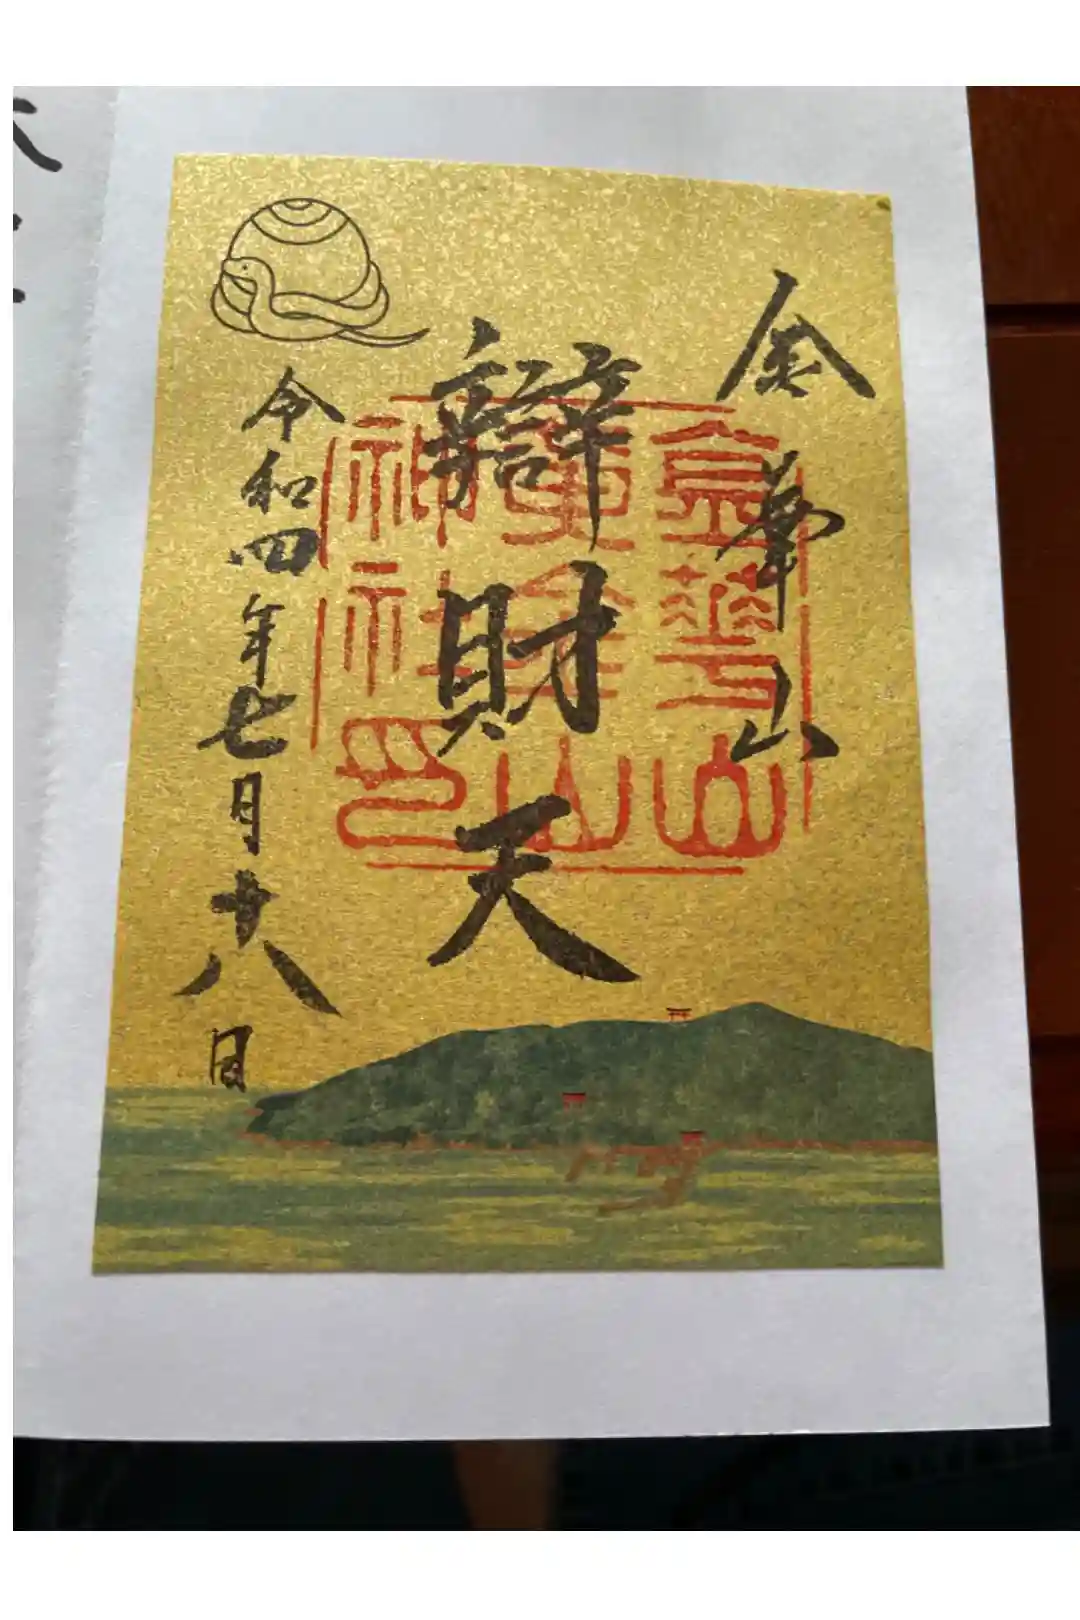 金華山
辯財天
令和四年七月十八日
金華山
黄金山
神社印